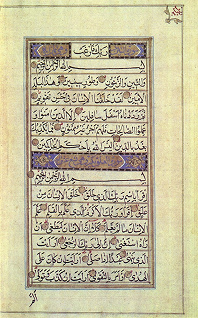 بسم الله الرحمن الرحيم
والتين والزيتون وطور سينين وهذا البلد
الأمين لقد خلقنا الإنسان في أحسن تقويم
ثم رددناه أسفل سافلين إلا الذين آمنوا
وعملوا الصالحات فلهم أجر غير ممنون فما يكذبك
بعد بالدين أليس الله بأحكم الحاكمين
بسم الله الرحمن الرحيم
اقرأ باسم ربك الذي خلق خلق الإنسان من
علق اقرأ وربك الأكرم الذي علم بالقلم علم
الإنسان ما لم يعلم كلا إن الإنسان ليطغى أن
رآه استغنى إن إلى ربك الرجعى أرأيت الذي
ينهى عبدا إذا صلى أرأيت إن كان على
الهدى أو أمر بالتقوى أرأيت إن كذب وتولى
ألم